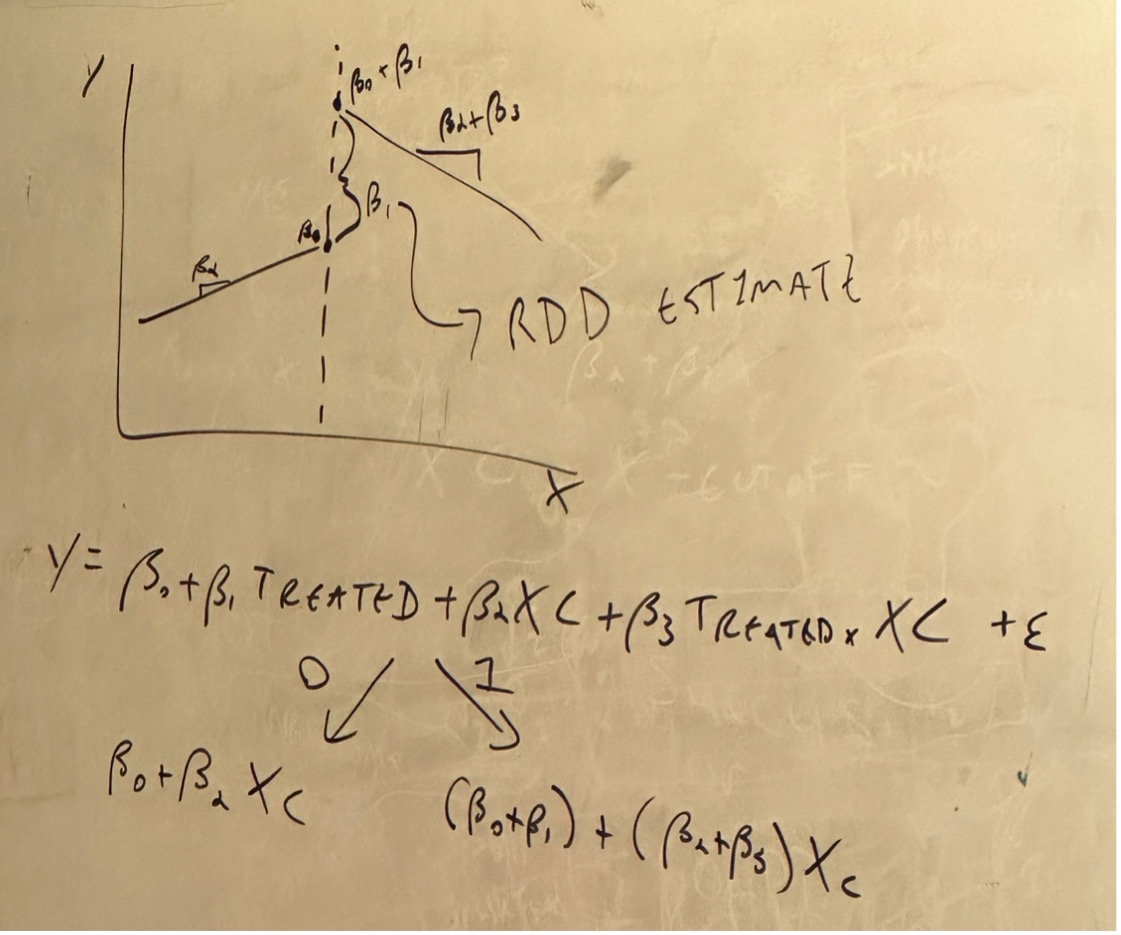 Y
β₀ + β₁
β₂+β₃
β₁
β₀
β₂
→ RDD ESTIMATE
X
X = CUTOFF
Y = β₀ + β₁ TREATED + β₂ XC + β₃ TREATED × XC + ε
0 1
β₀ + β₂ XC
(β₀+β₁) + (β₂+β₃) XC